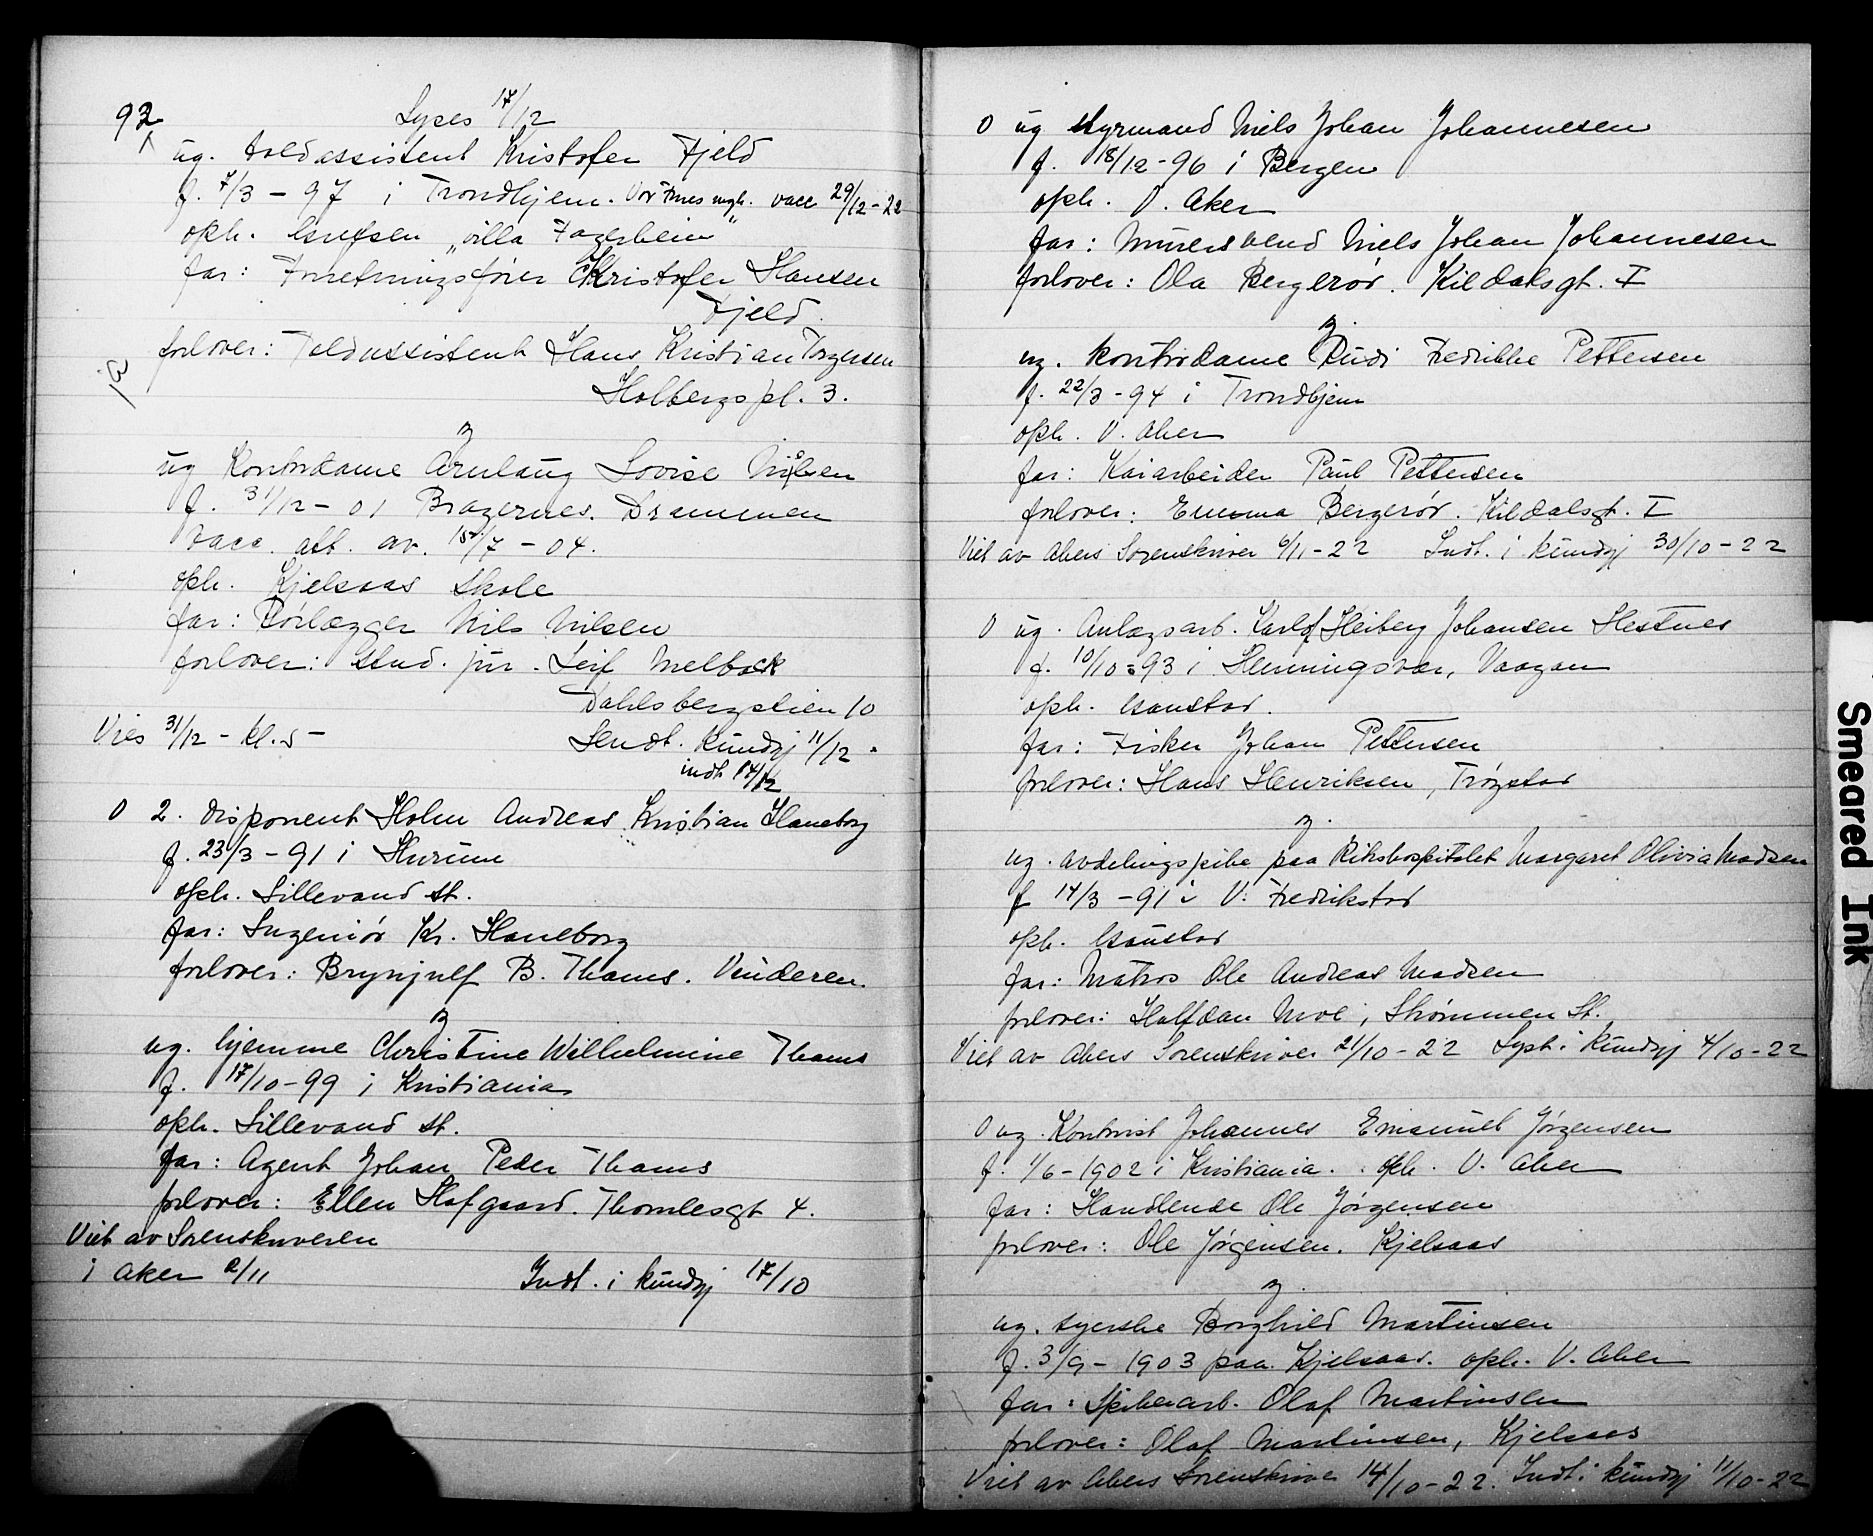 92
Lyses 17/12
ug. toldassistent Kristofer Fjeld
f. 7/3 - 97 i Trondhjem. Vor Frues mgh. vacc 29/12-22
oph. Grefsen „villa Fagerheim"
far: Forretningsfører Kristofer Hansen
Fjeld.
forlover: Toldassistent Hans Kristian Torgersen
Holbergs pl. 3.
og
ug Kontordame Arnlaug Lovise Nilsen
f. 31/12 - 01 Bragernes. Drammen
vacc. att. av. 15/7 - 04.
oph. Kjelsaas skole
far: Rørlægger Nils Nilsen
forlover: stud. jur. Leif Melbock
Dahlsbergstien 10
Vies 31/12 - kl. 5 -
Sendt. Kundgj 11/12.
indt 14/12
0 2. disponent Holm Andreas Kristian Haneborg
f. 23/3 - 91 i Hurum
oph. Lillevand st.
far: Ingeniør Kr. Haneborg
forlover: Brynjulf B. Thams. Vinderen.
og
ug. hjemme Christine Wilhelmine Thams
f. 17/10-99 i Kristiania
oph. Lillevand st.
far: Agent Johan Peder Thams
forlover: Ellen Hafgaard. Thomlesgt 4.
Viet av Sorenskriveren
i Aker 2/11
Indt. i kundgj 17/10
0 ug styrmand Niels Johan Johannesen
f. 18/12-96 i Bergen
oph. V. Aker
far: Murersvend Niels Johan Johannesen
forlover: Ola Bergerør. Kildalsgt. I
og
ug. kontordame Rudi Fredrikke Pettersen
f. 22/3 - 94 i Trondhjem
oph. V. Aker
far: Kaiarbeider Paul Pettersen
forlover: Emma Bergerør. Kildalsgt. I
Viet av Akers Sorenskriver 6/11-22 Indt. i kundgj 30/10-22
0 ug. Anlægsarb. Karlof Heiberg Johansen Hestnes
f. 10/10-93 i Henningsvær, Vaagan
oph. Gaustad.
far: Fisker Johan Pettersen
forlover: Hans Henriksen, Trøgstad
og.
ug. avdelingspike paa Rikshospitalet Margaret Olivia Madsen
f 14/3 - 91 i V. Fredrikstad
oph. Gaustad
far: Matros Ole Andreas Madsen
forlover: Halfdan Moe, Strømmen St.
Viet av Akers Sorenskriver 21/10-22 Lyst i kundgj 4/10-22
0 ug. Kontorist Johannes Emanuel Jørgensen
f. 1/6-1902 i Kristiania. oph. V. Aker
far: Handlende Ole Jørgensen
forlover: Ole Jørgensen. Kjelsaas
og.
ug. syerske Borghild Martinsen
f. 3/9 - 1903 paa Kjelsaas. oph. V. Aker
far: Spikerarb. Olaf Martinsen
forlover: Olaf Martinsen, Kjelsaas
Viet av Akers Sorenskriver 14/10-22. Indt i kundgj 11/10-22
Smeared Ink